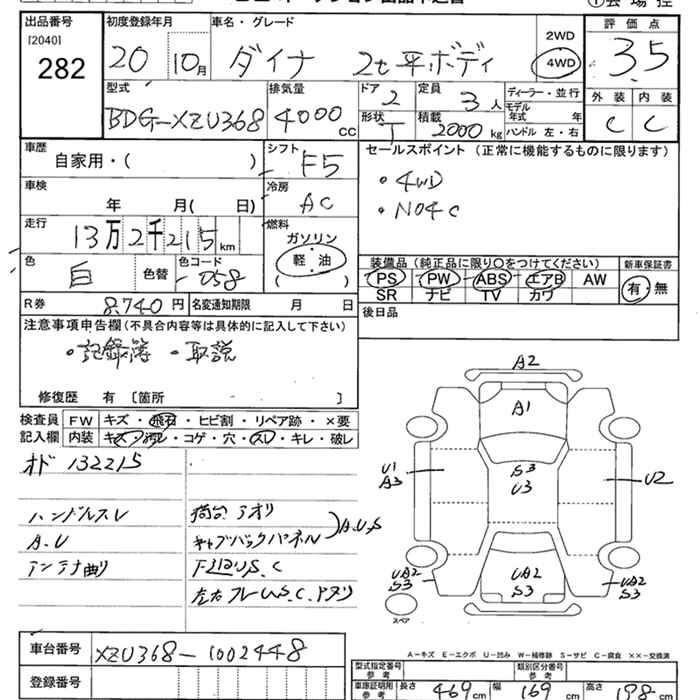 出品番号
[2040]
282
初度登録年月
20 10月
車名・グレード
ダイナ 2t平ボディ
2WD
4WD
評価点
3.5
型式
BDG-XZU368
排気量
4000 CC
ドア
2
定員
3人
形状
積載
2000kg
ディーラー・並行
モデル年式 年
ハンドル 左・右
外装 内装
C C
車歴
自家用・( )
シフト
F5
セールスポイント (正常に機能するものに限ります)
・4WD
・N04C
車検
年 月( 日)
冷房
AC
走行
13万2千215km
燃料
ガソリン
軽・油
( )
色
白
色替
色コード
058
装備品 (純正品に限り○をつけてください)
PS PW ABS エアB AW
SR ナビ TV カワ
新車保証書
有・無
R券
8,740円
名変通知期限 月 日
後日品
注意事項申告欄(不具合内容等は具体的に記入して下さい)
・記録簿 ・取説
修復歴 有 [箇所 ]
検査員
記入欄
FW キズ・飛石・ヒビ割・リペア跡・×要
内装 キズ・汚レ・コゲ・穴・スレ・キレ・破レ
オド 132215
ハンドルスレ
A.U
アンテナ曲り
荷台アオリ
キャブバックパネル
A.U.S
下廻りU.S.C
左右フレームS.C.アオリ
A2
A1
S3
U3
U1
A3
U2
UA2
S3
UA2
S3
UA2
S3
スペア
A-キズ E-エクボ U-凹み W-補修跡 S-サビ C-腐食 ××-交換済
車台番号
XZU368-1002448
登録番号
型式指定番号
参考
類別区分番号
参考
車庫証明用
参考
長さ 469cm 幅 169cm 高さ 198cm